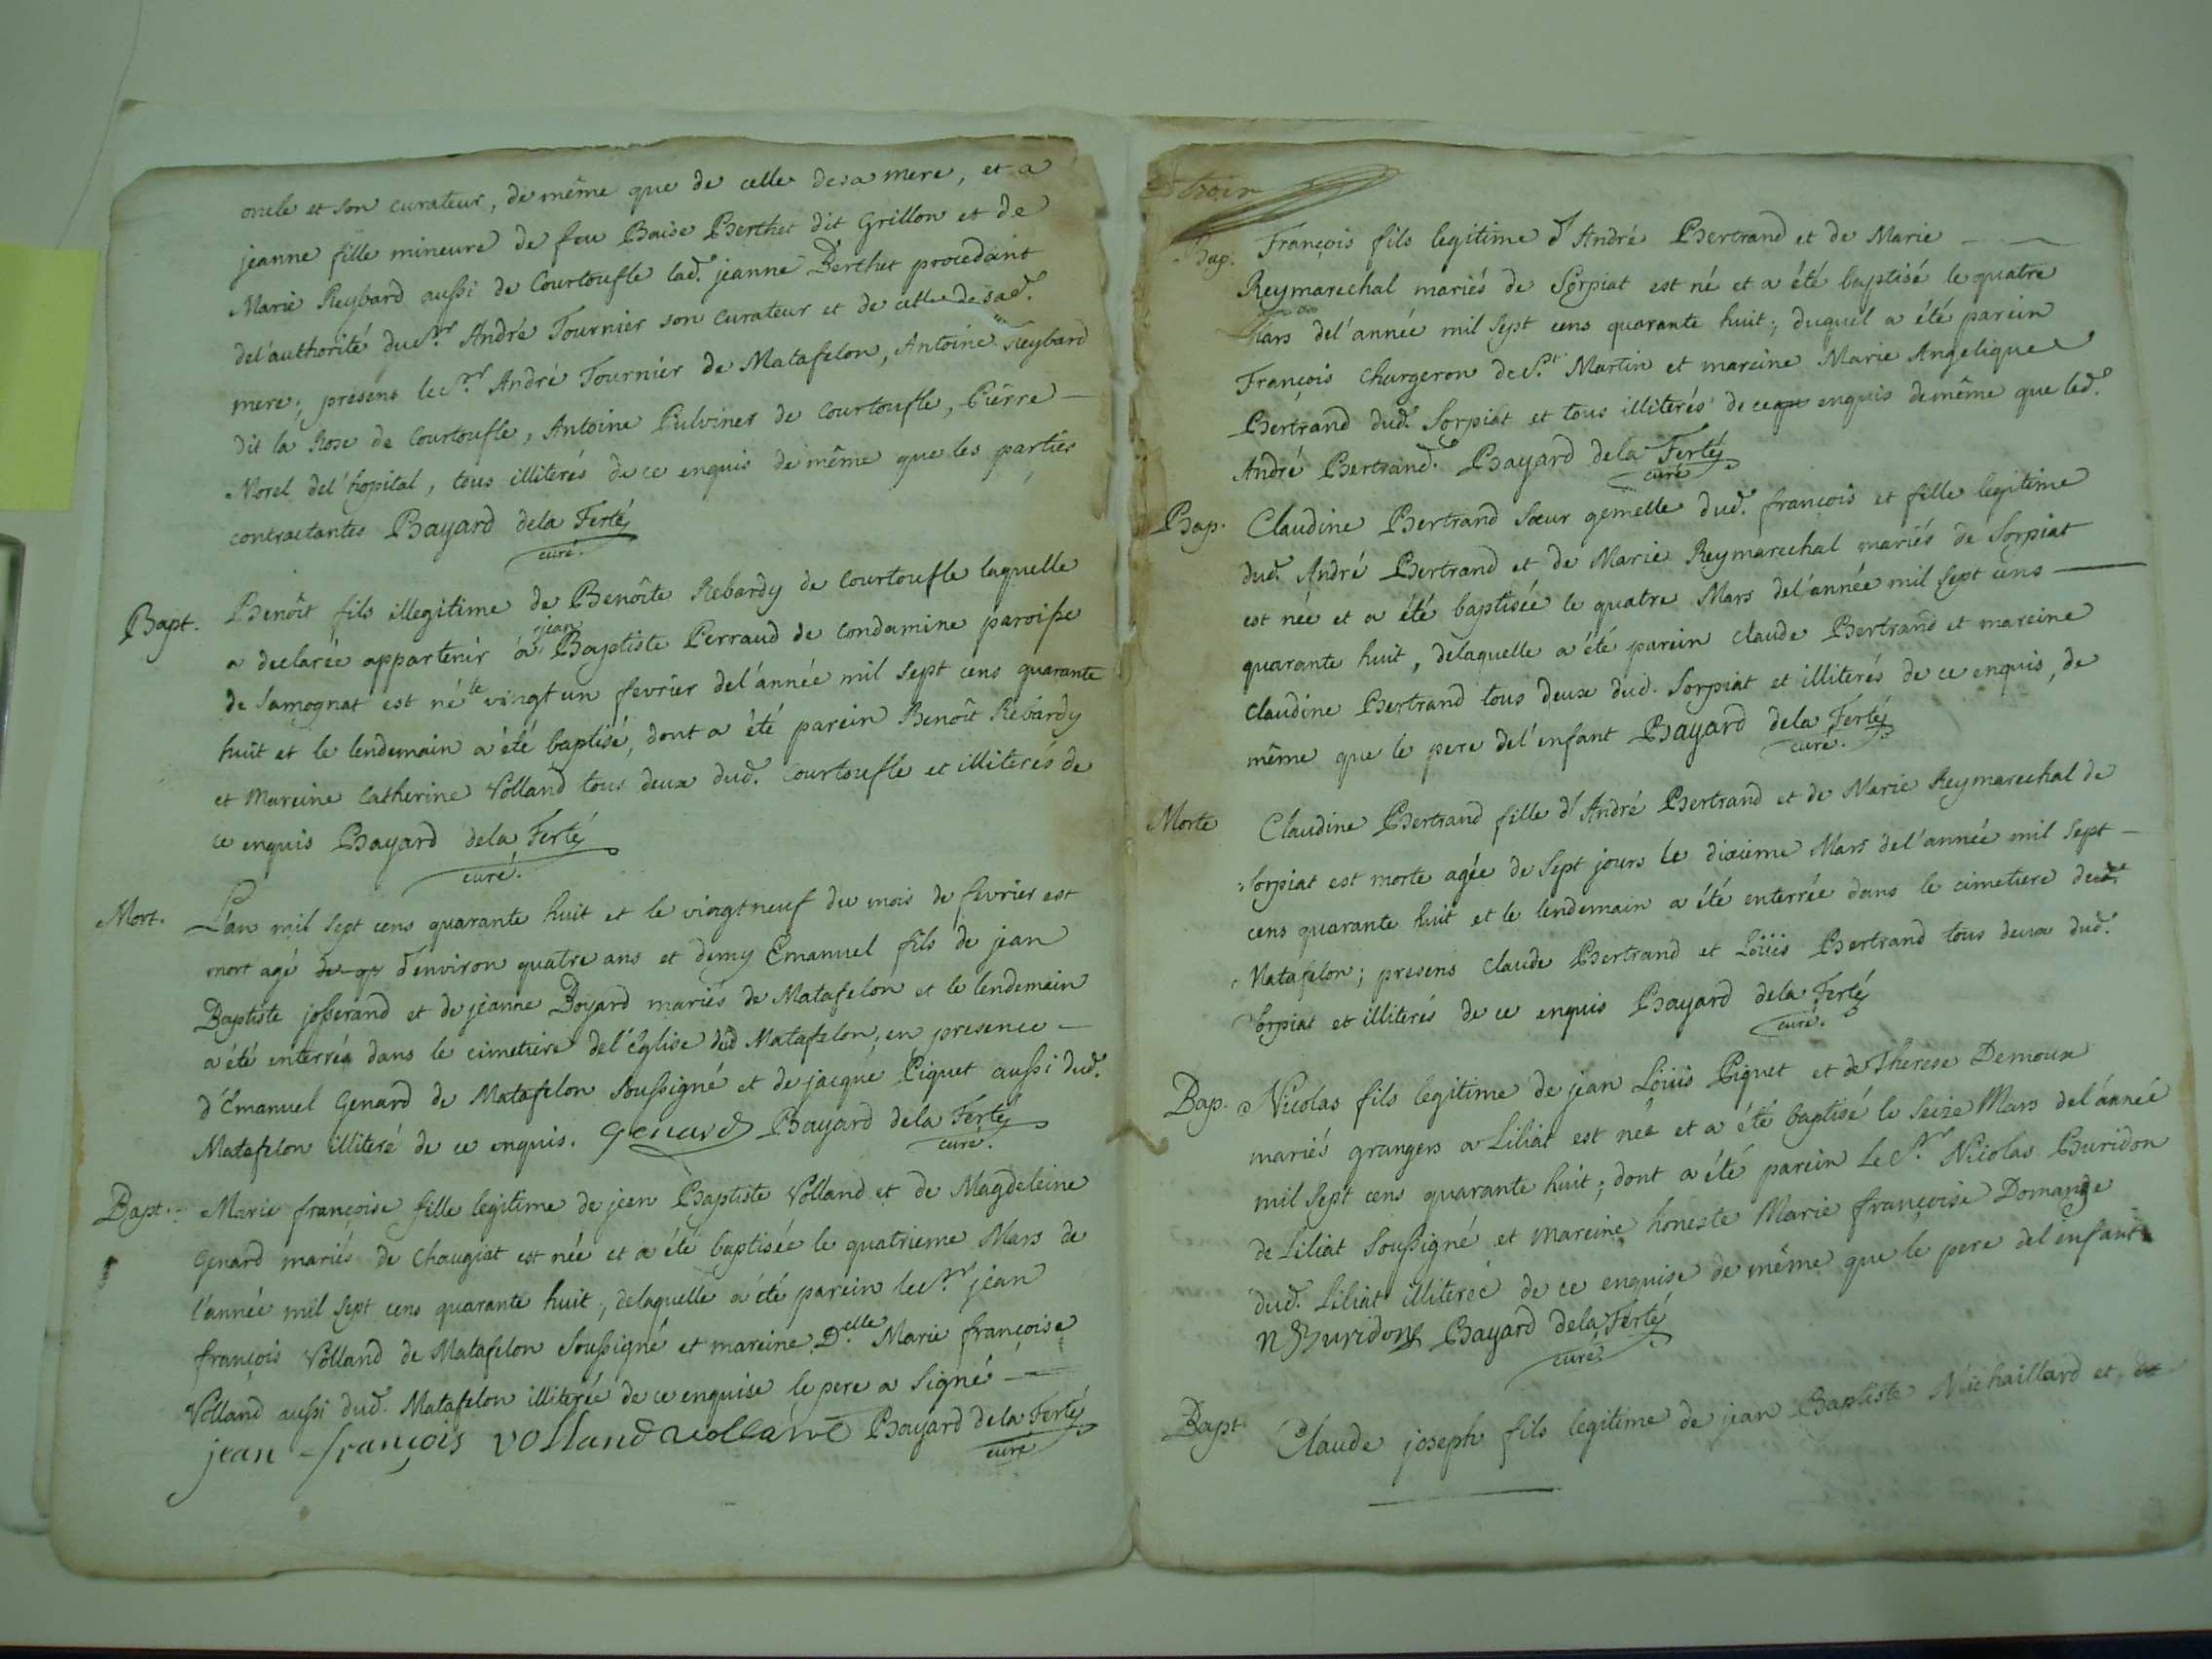 oncle et son curateur, de même que de celle desa mere, et a
jeanne fille mineure de feu Baise Berthet dit Grillon et de
Marie Reybard aussi de Courtoufle lad. jeanne Berthet procedant
del'authorité du Sr. André Tournier son curateur et de celle de sad.
mere; presens le Sr. André Tournier de Matafelon, Antoine Reybard
dit la Rose de Courtoufle, Antoine Pulviner de Courtoufle, Pierre —
Morel del'hopital, tous illiterés de ce enquis de même que les parties
contractantes Bayard dela Ferté
curé.
Bapt. Benôit fils illegitime de Benôite Rebardy de Courtoufle laquelle
a declarée appartenir à jean Baptiste Perraud de Condamine paroisse
de Samognat est né le vingt un fevrier del'année mil sept cens quarante
huit et le lendemain a été baptisé, dont a été parein Benoît Rebardy
et Mareine Catherine Volland tous deux dud. Courtoufle et illiterés de
ce enquis Bayard dela Ferté
curé.
Mort. L'an mil sept cens quarante huit et le vingtneuf du mois de fevrier est
mort agé d'environ quatre ans et demy Emanuel fils de jean
Baptiste josserand et de jeanne Boyard mariés de Matafelon et le lendemain
a été enterré dans le cimetiere del'église dud Matafelon, en presence —
d'Emanuel Genard de Matafelon soussigné et de jacque Piquet aussi dud.
Matafelon illiteré de ce enquis. Genard Bayard dela Ferté
curé.
Bapt. Marie françoise fille legitime de jean Baptiste Volland et de Magdeleine
Genard mariés de Chaugiat est née et a été baptisée le quatrieme Mars de
l'année mil sept cens quarante huit, delaquelle a été parein le Sr. jean
françois Volland de Matafelon soussigné et mareine Delle. Marie françoise
Volland aussi dud. Matafelon illiterée de ce enquise le pere a signé —
jean-françois volland volland Bayard dela Ferté
curé
trois
Bap. François fils legitime d'André Bertrand et de Marie —
Reymarechal mariés de Sorpiat est né et a été baptisé le quatre
Mars del'année mil sept cens quarante huit; duquel a été parein
François Chargeron de St. Martin et mareine Marie Angelique
Bertrand dud. Sorpiat et tous illiterés de ce enquis demême que led.
André Bertrand. Bayard dela Ferté
curé
Bap. Claudine Bertrand sœur gemelle dud. francois et fille legitime
dud. André Bertrand et de Marie Reymarechal mariés de Sorpiat
est née et a été baptisée le quatre Mars del'année mil sept cens —
quarante huit, delaquelle a été parein Claude Bertrand et mareine
Claudine Bertrand tous deux dud. Sorpiat et illiterés de ce enquis, de
même que le pere del'enfant Bayard dela Ferté
curé.
Morte Claudine Bertrand fille d'André Bertrand et de Marie Reymarechal de
Sorpiat est morte agée de sept jours le dixieme Mars del'année mil sept —
cens quarante huit et le lendemain a été enterrée dans le cimetiere de
Matafelon; presens Claude Bertrand et Loüis Bertrand tous deux dud.
Sorpiat et illiterés de ce enquis Bayard dela Ferté
curé.
Bap. Nicolas fils legitime de jean Loüis Piquet et de Therese Demoux
mariés grangers a Liliat est née et a été baptisé le seize Mars del'année
mil sept cens quarante huit; dont a été parein Le Sr. Nicolas Buridon
de Liliat soussigné et mareine honeste Marie françoise Domange
dud. Liliat illiterée de ce enquise de même que le pere del'enfant
N Buridon Bayard dela Ferté
curé
Bapt Claude joseph fils legitime de jean Baptiste Michaillard et de